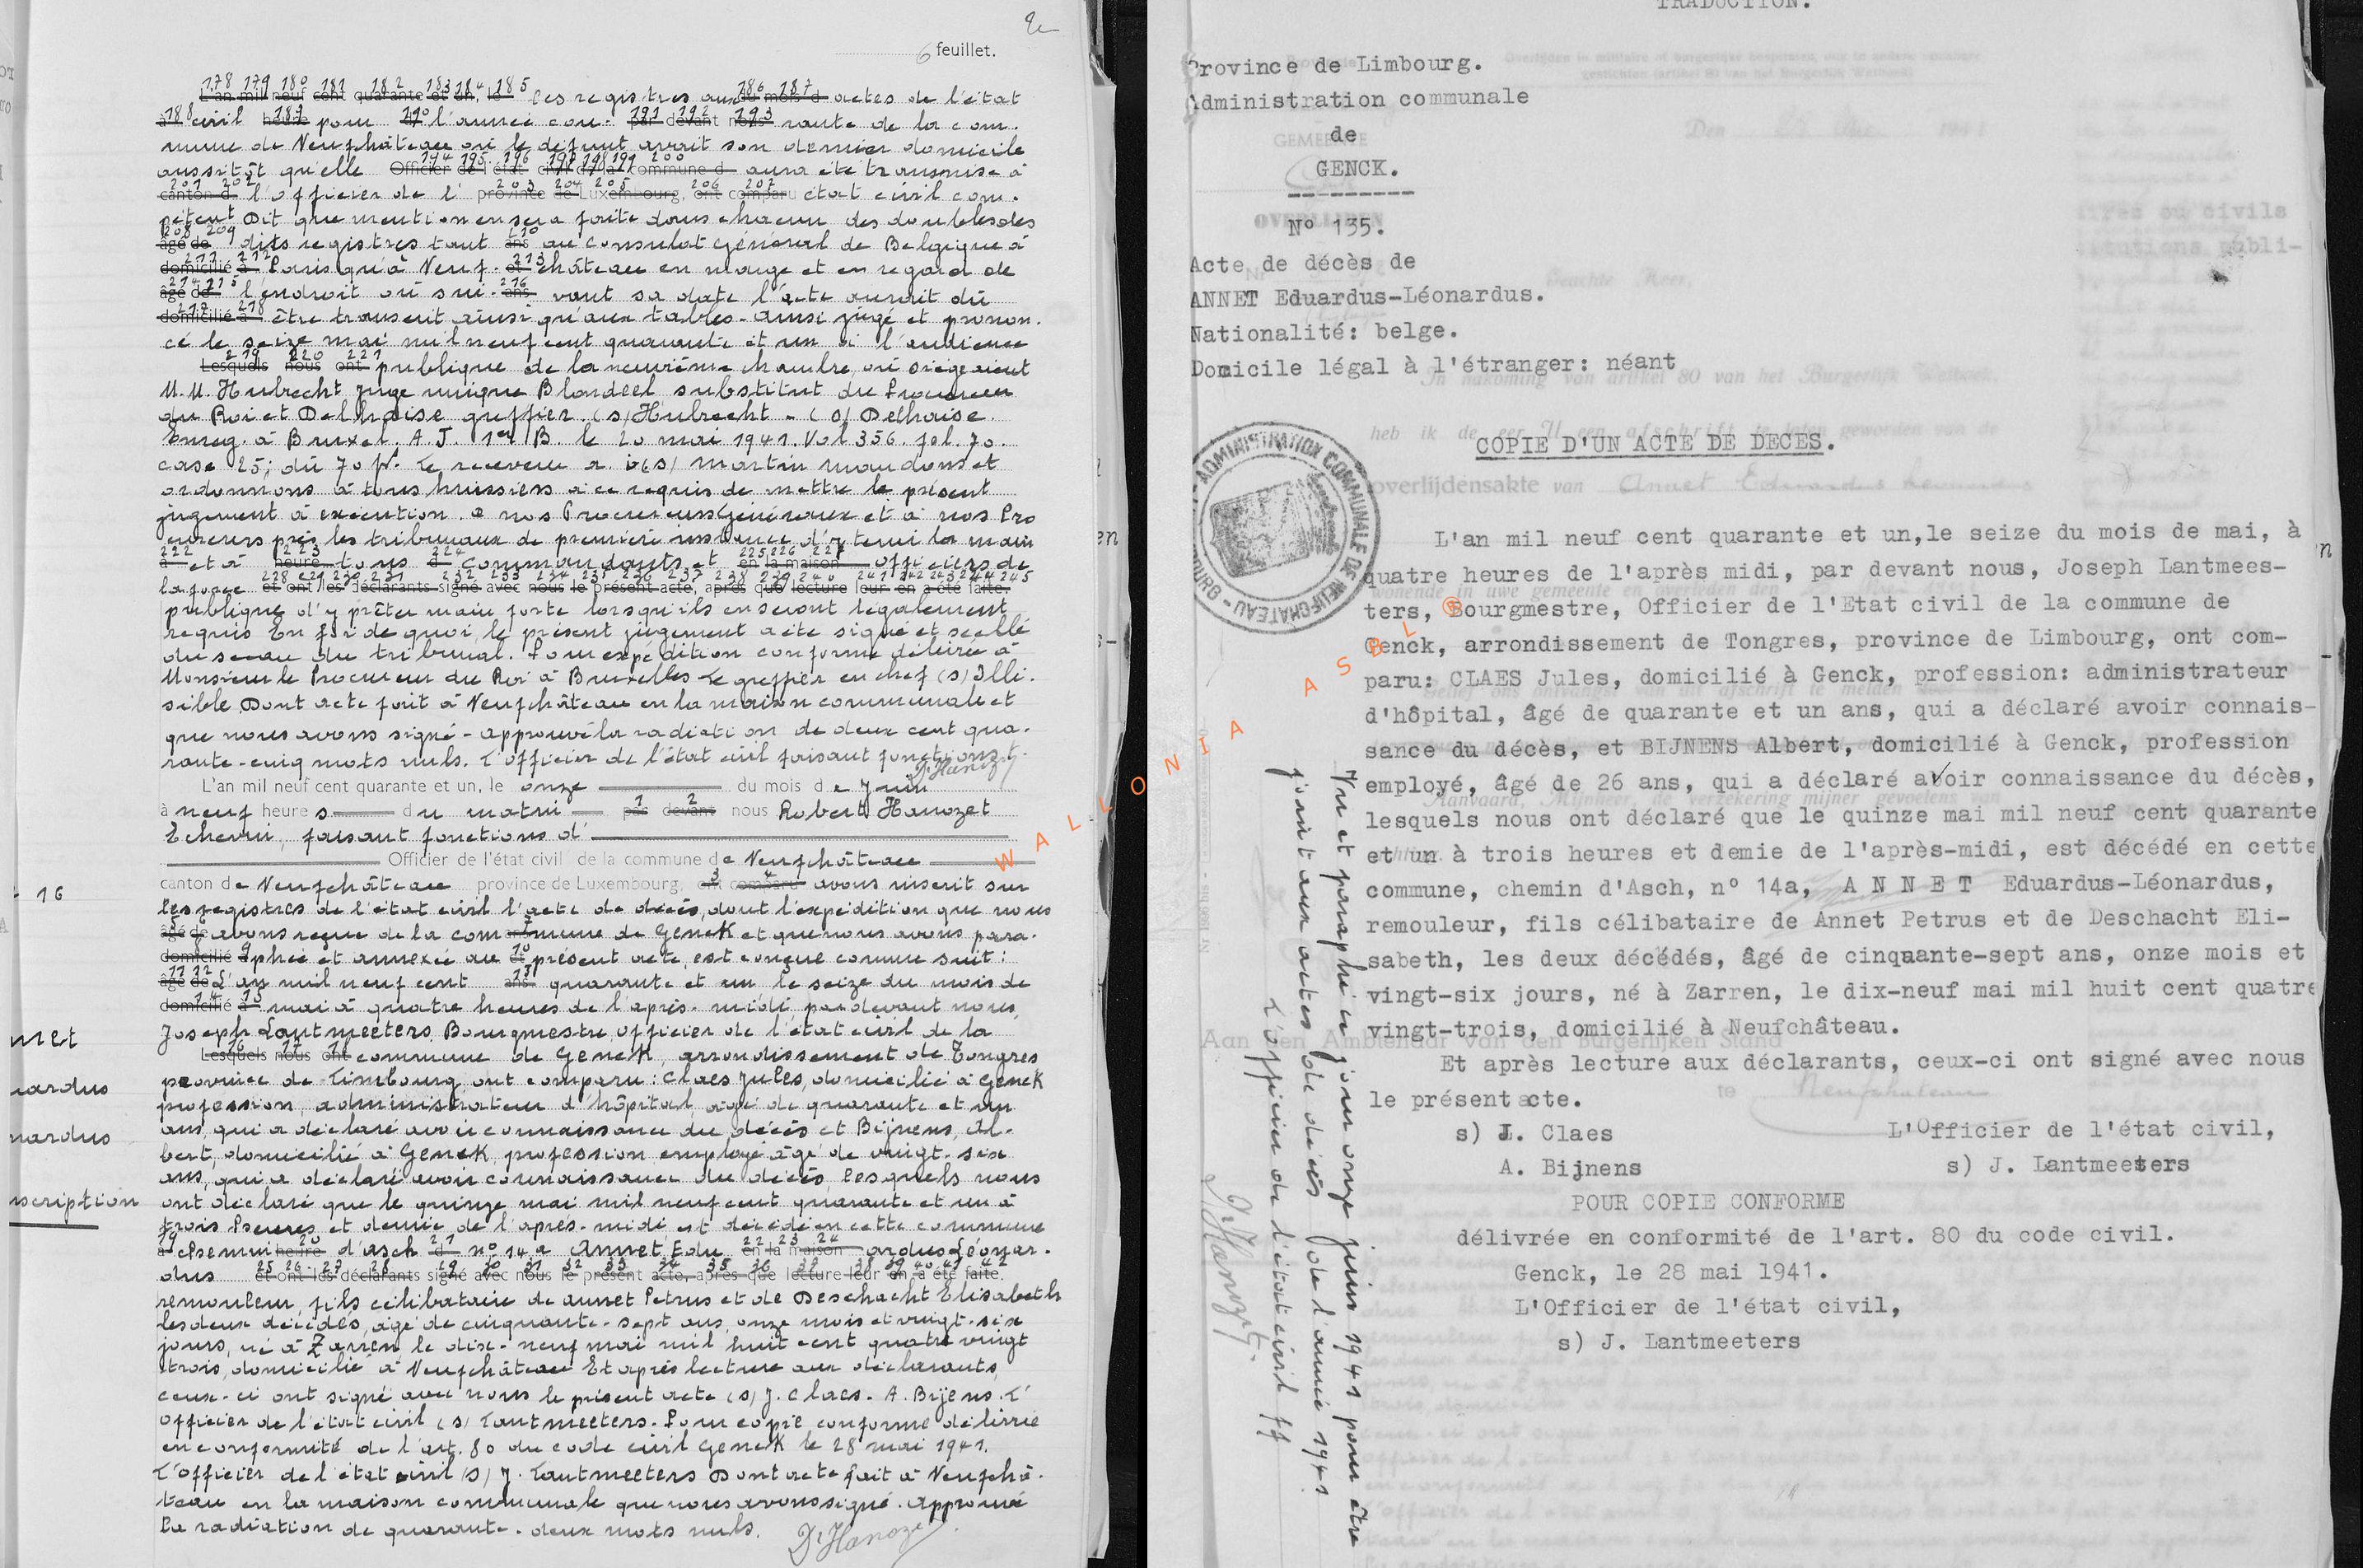 6 feuillet.
L'an mil neuf cent quarante et un, le les registres aux du mois d actes de l'état
à civil heure pour d l'année cou- par devant nous rante de la com-
mune de Neufchâteau où le défunt avait son dernier domicile
aussitôt qu'elle Officier de l'état civil de la commune d aura été transmise à
canton d l'officier de l' province de Luxembourg, ont comparu état civil com-
pétent Dit que mention en sera faite dans chacun des doubles des
âgé de dits registres tant ans au Consulat Général de Belgique à
domicilié à Paris qu'à Neuf- et château en marge et en regard de
âgé de l'endroit où sui- ans vant sa date l'acte aurait dû
domicilié à être transcrit ainsi qu'aux tables. Ainsi jugé et pronon-
cé le seize mai mil neuf cent quarante et un à l'audience
Lesquels nous ont publique de la neuvième chambre où siégeaient
M.M. Hubrecht Juge unique Blondeel substitut du Procureur
du Roi et Delhaise greffier. (s) Hubrecht - (s) Delhaise.
Enreg. à Bruxel. A.J. 1er B. le 20 mai 1941. Vol 356. fol. 70.
case 25; dû 70 fr. Le receveur a. i. (s) Martin Mandons et
ordonnons à tous huissiers à ce requis de mettre le présent
jugement à exécution. à nos Procureurs Généraux et à nos Pro
cureurs près les tribunaux de première instance d'y tenir la main
à et à heure tous d commandants et en la maison officiers de
la force et ont les déclarants signé avec nous le présent acte, après que lecture leur en a été faite.
publique d'y prêter main forte lorsqu'ils en seront légalement
requis En foi de quoi, le présent jugement a été signé et scellé
du sceau du tribunal. Pour expédition conforme délivrée à
Monsieur le Procureur du Roi à Bruxelles Le greffier en chef (s) Illi-
sible. Dont acte fait à Neufchâteau en la maison communale et
que nous avons signé - approuvé la radiation de deux cent qua-
rante-cinq mots nuls. L'officier de l'état civil faisant fonctions.
Dr Hanozet
L'an mil neuf cent quarante et un, le onze du mois de Juin
à neuf heures du matin par devant nous Robert Hanozet
Echevin, faisant fonctions d'
Officier de l'état civil de la commune de Neufchâteau
canton de Neufchâteau province de Luxembourg, ont comparu avons inscrit sur
les registres de l'état civil l'acte de décès, dont l'expédition que nous
âgé de avons reçue de la com- ans mune de Genck et que nous avons para-
domicilié à phée et annexée au et présent acte, est conçue comme suit:
âgé de L'an mil neuf cent ans quarante et un le seize du mois de
domicilié à mai à quatre heures de l'après-midi, par devant nous
Joseph Lantmeeters Bourgmestre, officier de l'état civil de la
Lesquels nous ont commune de Genck, arrondissement de Tongres
province de Limbourg, ont comparu: Claes Jules, domicilié à Genck
profession, administrateur d'hôpital, âgé de quarante et un
ans, qui a déclaré avoir connaissance du décès et Bijnens, Al-
bert, domicilié à Genck, profession employé âgé de vingt-six
ans, qui a déclaré avoir connaissance du décès, lesquels nous
ont déclaré que le quinze mai mil neuf cent quarante et un à
trois heures et demie de l'après-midi est décédé en cette commune
à chemin heure d'Asch d n° 14 a Annet Edu en la maison ardus Léonar-
dus et ont les déclarants signé avec nous le présent acte, après que lecture leur en a été faite.
remouleur, fils célibataire de Annet Petrus et de Deschacht Elisabeth
les deux décédés, âgé de cinquante-sept ans, onze mois et vingt-six
jours, né à Zarren le dix-neuf mai mil huit cent quatre vingt
trois, domicilié à Neufchâteau Et après lecture aux déclarants,
ceux-ci ont signé avec nous le présent acte (s) J. Claes. A. Bijens. L'
officier de l'état civil (s) Lantmeeters. Pour copie conforme délivrée
en conformité de l'art. 80 du code civil Genck le 28 mai 1941.
L'officier de l'état civil (s) J. Lantmeeters Dont acte fait à Neufchâ-
teau en la maison communale que nous avons signé. Approuvé
la radiation de quarante-deux mots nuls.
Dr Hanozet
16
nnet
uardus
nardus
nscription
WALLONIA ASBL ®
TRADUCTION.
Province de Limbourg.
Administration communale
de
GENCK.
N° 135.
Acte de décès de
ANNET Eduardus-Léonardus.
Nationalité: belge.
Domicile légal à l'étranger: néant
ADMINISTRATION COMMUNALE DE NEUFCHATEAU - LUXEMBOURG
COPIE D'UN ACTE DE DECES.
L'an mil neuf cent quarante et un,le seize du mois de mai, à
quatre heures de l'après midi, par devant nous, Joseph Lantmees-
ters, Bourgmestre, Officier de l'Etat civil de la commune de
Genck, arrondissement de Tongres, province de Limbourg, ont com-
paru: CLAES Jules, domicilié à Genck, profession: administrateur
d'hôpital, âgé de quarante et un ans, qui a déclaré avoir connais-
sance du décès, et BIJNENS Albert, domicilié à Genck, profession
employé, âgé de 26 ans, qui a déclaré avoir connaissance du décès,
lesquels nous ont déclaré que le quinze mai mil neuf cent quarante
et un à trois heures et demie de l'après-midi, est décédé en cette
commune, chemin d'Asch, n° 14a, A N N E T Eduardus-Léonardus,
remouleur, fils célibataire de Annet Petrus et de Deschacht Eli-
sabeth, les deux décédés, âgé de cinquante-sept ans, onze mois et
vingt-six jours, né à Zarren, le dix-neuf mai mil huit cent quatre
vingt-trois, domicilié à Neufchâteau.
Et après lecture aux déclarants, ceux-ci ont signé avec nous
le présent acte.
s) J. Claes
L'Officier de l'état civil,
A. Bijnens
s) J. Lantmeesters
POUR COPIE CONFORME
délivrée en conformité de l'art. 80 du code civil.
Genck, le 28 mai 1941.
L'Officier de l'état civil,
s) J. Lantmeeters
Vu et paraphé ce jour onze juin 1941 pour être
joint aux actes de décès de l'année 1941
L'officier de l'état civil ff
Dr Hanozet.